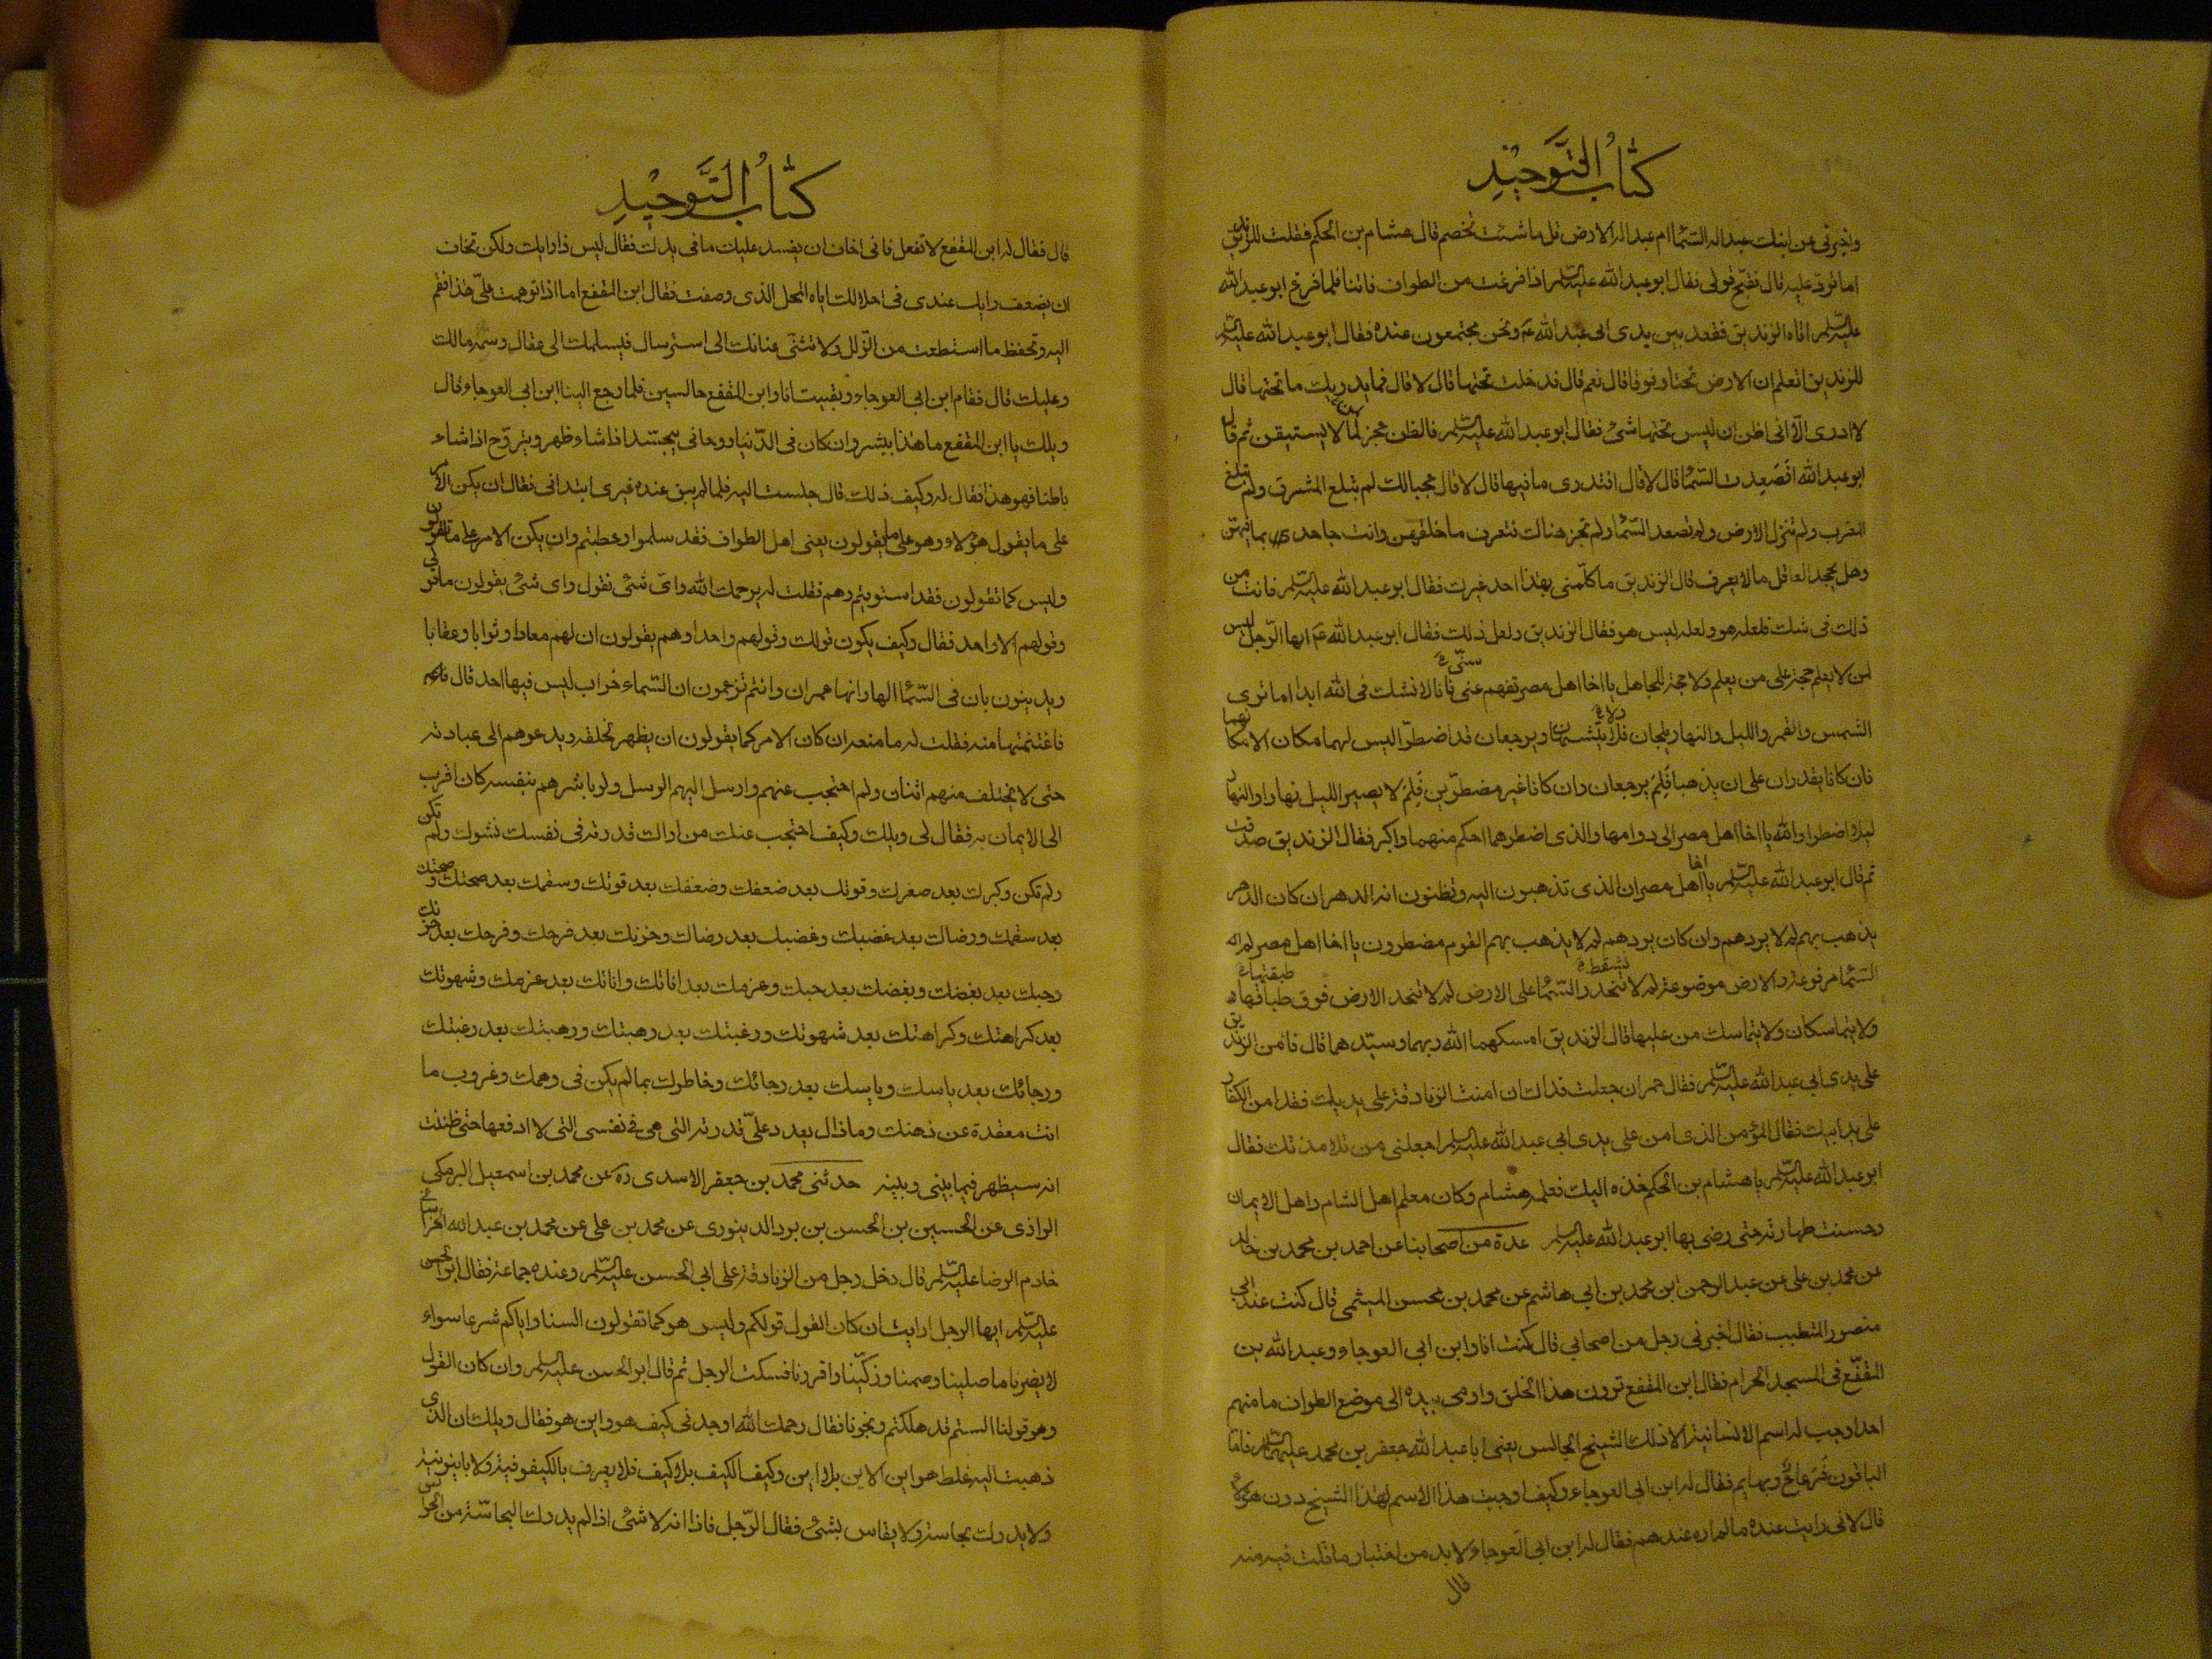 كتاب التوحيد
واخبرني عن ابنك عبد اله السما ام عبد اله الارض قل ما شئت تخصم قال هشام بن الحكم فقلت للزنديق
اما ترد عليه قال فقبح قولي فقال ابو عبد الله عليه السلم اذا فرغت من الطواف فاتنا فلما فرغ ابو عبد الله
عليه السلم اتاه الزنديق فقعد بين يدى ابى عبد الله ع ونحن مجتمعون عنده فقال ابو عبد الله عليه السلم
للزنديق اتعلم ان الارض تحتا وفوقا قال نعم قال فدخلت تحتها قال لا قال فما يدريك ما تحتها قال
لا ادرى الا انى اظن ان ليس تحتها شئ فقال ابو عبد الله عليه السلم فالظن عجز لما لا يستيقن ثم قال
ابو عبد الله افصعدت السما قال لا قال افتدرى ما فيها قال لا قال عجبا لك لم تبلغ المشرق ولم تبلغ
المغرب ولم تنزل الارض ولم تصعد السما ولم تجز هناك فتعرف ما خلفهن وانت جاحد بما فيهن
وهل يجحد العاقل ما لا يعرف قال الزنديق ما كلمني بهذا احد غيرك فقال ابو عبد الله عليه السلم فانت من
ذلك في شك فلعله هو ولعله ليس هو فقال الزنديق ولعل ذلك فقال ابو عبد الله ع ايها الرجل ليس
لمن لا يعلم حجة على من يعلم ولا حجة للجاهل يا اخا اهل مصر تفهم عني فانا لا نشك في الله ابدا اما ترى
الشمس والقمر والليل والنهار يلجان فلا يشتبهان ويرجعان قد اضطرا ليس لهما مكان الا مكانهما
فان كانا يقدران على ان يذهبا فلم يرجعان وان كانا غير مضطرين فلم لا يصير الليل نهارا والنهار
ليلا اضطرا والله يا اخا اهل مصر الى دوامهما والذى اضطرهما احكم منهما واكبر فقال الزنديق صدقت
ثم قال ابو عبد الله عليه السلم يا اخا اهل مصر ان الذى تذهبون اليه وتظنون انه الدهر ان كان الدهر
يذهب بهم لم لا يردهم وان كان يردهم لم لا يذهب بهم القوم مضطرون يا اخا اهل مصر لم
السما مرفوعة والارض موضوعة لم لا تنحدر السما على الارض لم لا تنحدر الارض فوق طباقها
ولا يتماسكان ولا يتماسك من عليها قال الزنديق امسكهما الله ربهما وسيدهما قال فامن الزنديق
على يدى ابي عبد الله عليه السلم فقال حمران جعلت فداك ان امنت الزنادقة على يديك فقد امن الكفار
على يد ابيك فقال المؤمن الذى امن على يدى ابي عبد الله عليه السلم اجعلني من تلامذتك فقال
ابو عبد الله عليه السلم يا هشام بن الحكم خذه اليك فعلمه هشام وكان معلم اهل الشام واهل الايمان
وحسنت طهارته حتى رضى بها ابو عبد الله عليه السلم عدة من اصحابنا عن احمد بن محمد بن خالد
عن محمد بن على عن عبد الرحمن ابن محمد بن ابي هاشم عن محمد بن محسن الميثمي قال كنت عند ابي
منصور المتطبب فقال اخبرني رجل من اصحابي قال كنت انا وابن ابي العوجاء وعبد الله بن
المقفع فى المسجد الحرام فقال ابن المقفع ترون هذا الخلق واومى بيده الى موضع الطواف ما منهم
احد اوجب له اسم الانسانية الا ذلك الشيخ الجالس يعنى ابا عبد الله جعفر بن محمد عليهما السلم فاما
الباقون فرعاع وبهايم فقال له ابن ابي العوجاء وكيف اوجبت هذا الاسم لهذا الشيخ دون هؤلاء
قال لانى رايت عنده ما لم اره عندهم فقال له ابن ابي العوجاء لا بد من اختبار ما قلت فيه منه
قال
كتاب التوحيد
قال فقال له ابن المقفع لا تفعل فانى اخاف ان يفسد عليك ما فى يدك فقال ليس ذا رايك ولكن تخاف
ان يضعف رايك عندى فى احلالك اياه المحل الذى وصفت فقال ابن المقفع اما اذا توهمت على هذا فقم
اليه وتحفظ ما استطعت من الزلل ولا تثنى عنانك الى استرسال فيسلمك الى عقال وسمه مالك
وعليك قال فقام ابن ابي العوجاء وبقيت انا وابن المقفع جالسين فلما رجع الينا ابن ابي العوجاء قال
ويلك يا ابن المقفع ما هذا ببشر وان كان فى الدنيا روحانى يتجسد اذا شاء ظهر ويتروح اذا شاء
باطنا فهو هذا فقال له وكيف ذلك قال جلست اليه فلما لم يبق عنده غيرى ابتدانى فقال ان يكن الامر
على ما يقول هؤلاء وهو على ما يقولون يعنى اهل الطواف فقد سلموا وعطبتم وان يكن الامر على ما تقولون
وليس كما تقولون فقد استويتم وهم فقلت له يرحمك الله واى شئ نقول واى شئ يقولون ما قولى
وقولهم الا واحد فقال وكيف يكون قولك وقولهم واحدا وهم يقولون ان لهم معادا وثوابا وعقابا
ويدينون بان فى السما الها وانها عمران وانتم تزعمون ان السماء خراب ليس فيها احد قال
فاغتنمتها منه فقلت له ما منعه ان كان الامر كما يقولون ان يظهر لخلقه ويدعوهم الى عبادته
حتى لا يختلف منهم اثنان ولم احتجب عنهم وارسل اليهم الرسل ولو باشرهم بنفسه كان اقرب
الى الايمان به فقال لى ويلك وكيف احتجب عنك من اراك قدرته فى نفسك نشوك ولم تكن
ولم تكن وكبرك بعد صغرك وقوتك بعد ضعفك وضعفك بعد قوتك وسقمك بعد صحتك وصحتك
بعد سقمك ورضاك بعد غضبك وغضبك بعد رضاك وحزنك بعد فرحك وفرحك بعد حزنك
وحبك بعد بغضك وبغضك بعد حبك وعزمك بعد اناتك واناتك بعد عزمك وشهوتك
بعد كراهتك وكراهتك بعد شهوتك ورغبتك بعد رهبتك ورهبتك بعد رغبتك
ورجائك بعد ياسك وياسك بعد رجائك وخاطرك بما لم يكن فى وهمك وغروب ما
انت معقده عن ذهنك وما زال يعدد على قدرته التى هى فى نفسى التى لا ادفعها حتى ظننت
انه سيظهر فيما بينى وبينه حدثنى محمد بن جعفر الاسدى ره عن محمد بن اسمعيل البرمكى
الرازى عن الحسين بن الحسن بن برد الدينورى عن محمد بن على عن محمد بن عبد الله الخراسانى
خادم الرضا عليه السلم قال دخل رجل من الزنادقة على ابي الحسن عليه السلم وعنده جماعة فقال ابو الحسن
عليه السلم ايها الرجل ارايت ان كان القول قولكم وليس هو كما تقولون السنا واياكم شرعا سواء
لا يضرنا ما صلينا وصمنا وزكينا واقررنا فسكت الرجل ثم قال ابو الحسن عليه السلم وان كان القول
وهو قولنا الستم قد هلكتم ونجونا فقال رحمك الله اوجدنى كيف هو واين هو فقال ويلك ان الذى
ذهبت اليه غلط هو اين الاين بلا اين وكيف الكيف بلا كيف فلا يعرف بالكيفوفية ولا باينونية
ولا يدرك بحاسة ولا يقاس بشئ فقال الرجل فاذا انه لا شئ اذا لم يدرك بحاسة من الحواس